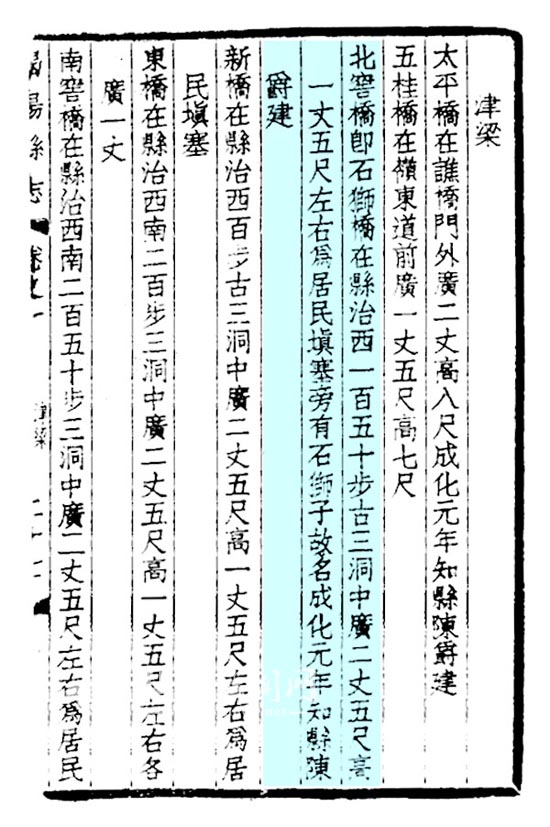 津梁
太平橋在譙樓門外廣二丈高八尺成化元年知縣陳爵建
五桂橋在嶺東道前廣一丈五尺高七尺
北窖橋卽石獅橋在縣治西一百五十步古三洞中廣二丈五尺高
一丈五尺左右爲居民塡塞旁有石獅子故名成化元年知縣陳
爵建
新橋在縣治西百步古三洞中廣二丈五尺高一丈五尺左右爲居
民塡塞
東橋在縣治西南二百步三洞中廣二丈五尺高一丈五尺左右各
廣一丈
南窖橋在縣治西南二百五十步三洞中廣二丈五尺左右爲居民
陽縣志
津梁